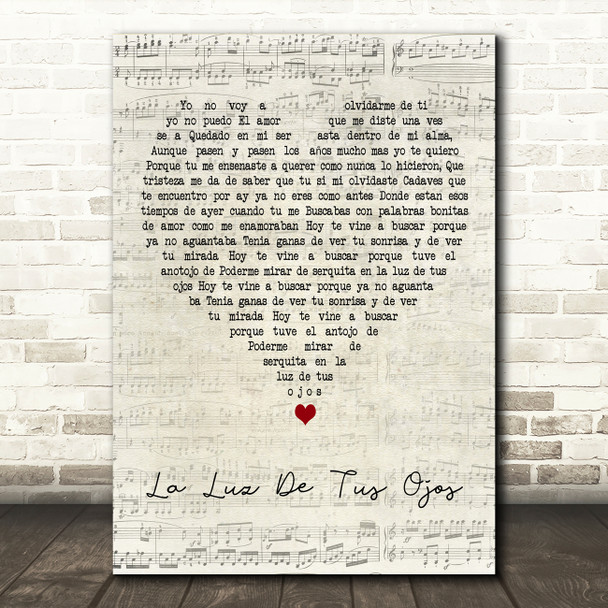 Yo no voy a olvidarme de ti
yo no puedo El amor que me diste una ves
se a Quedado en mi ser asta dentro de mi alma,
Aunque pasen y pasen los años mucho mas yo te quiero
Porque tu me ensenaste a querer como nunca lo hicieron, Que
tristeza me da de saber que tu si mi olvidaste Cadaves que
te encuentro por ay ya no eres como antes Donde estan esos
tiempos de ayer cuando tu me Buscabas con palabras bonitas
de amor como me enamoraban Hoy te vine a buscar porque
ya no aguantaba Tenia ganas de ver tu sonrisa y de ver
tu mirada Hoy te vine a buscar porque tuve el
anotojo de Poderme mirar de serquita en la luz de tus
ojos Hoy te vine a buscar porque ya no aguanta
ba Tenia ganas de ver tu sonrisa y de ver
tu mirada Hoy te vine a buscar
porque tuve el antojo de
Poderme mirar de
serquita en la
luz de tus
ojos
La Luz De Tus Ojos